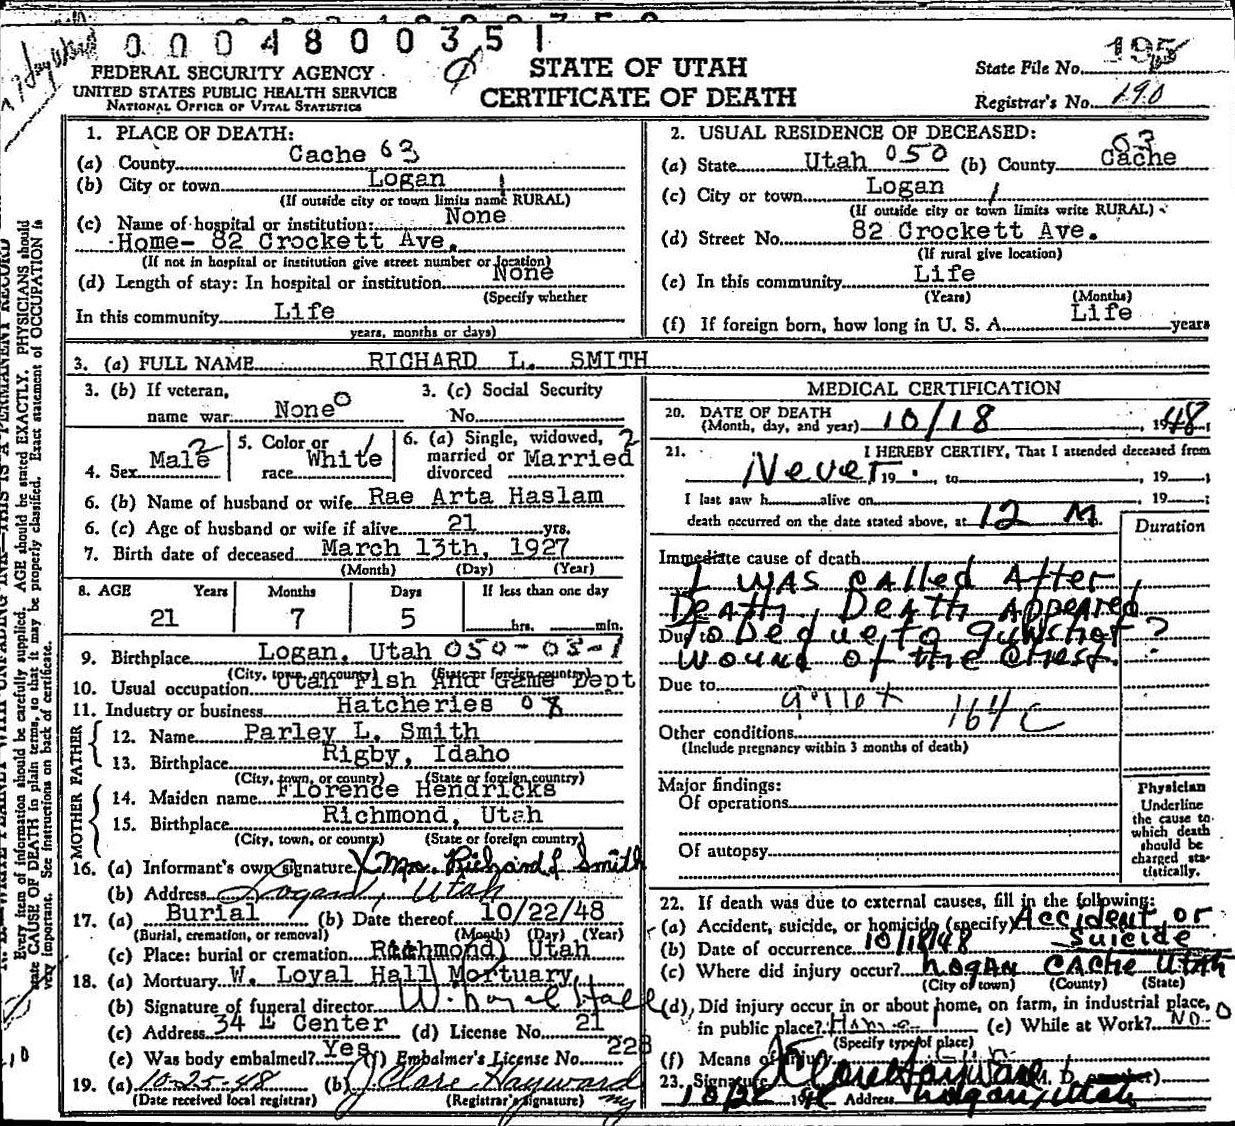 0 0 0 4 8 0 0 3 5 1
FEDERAL SECURITY AGENCY
UNITED STATES PUBLIC HEALTH SERVICE
NATIONAL OFFICE OF VITAL STATISTICS
STATE OF UTAH
CERTIFICATE OF DEATH
State File No. 195
Registrar's No. 190
1. PLACE OF DEATH:
(a) County Cache 63
(b) City or town Logan 1
(If outside city or town limits name RURAL)
(c) Name of hospital or institution: None
Home- 82 Crockett Ave.
(If not in hospital or institution give street number or location)
(d) Length of stay: In hospital or institution None
(Specify whether
In this community Life
years, months or days)
2. USUAL RESIDENCE OF DECEASED:
(a) State Utah 050 (b) County Cache 03
(c) City or town Logan 1
(If outside city or town limits write RURAL)
(d) Street No. 82 Crockett Ave.
(If rural give location)
(e) In this community Life
(Years) (Months)
(f) If foreign born, how long in U. S. A. Life years
3. (a) FULL NAME RICHARD L. SMITH
3. (b) If veteran, 3. (c) Social Security
name war None 0 No.
4. Sex Male 2 5. Color or race White 1 6. (a) Single, widowed, married or divorced Married 2
6. (b) Name of husband or wife Rae Arta Haslam
6. (c) Age of husband or wife if alive 21 yrs.
7. Birth date of deceased March 13th, 1927
(Month) (Day) (Year)
8. AGE Years Months Days If less than one day
21 7 5 hrs. min.
9. Birthplace Logan, Utah 050-03-1
(City, town, or county) (State or foreign country)
10. Usual occupation Utah Fish And Game Dept
11. Industry or business Hatcheries 08
FATHER
12. Name Parley L. Smith
13. Birthplace Rigby, Idaho
(City, town, or county) (State or foreign country)
MOTHER
14. Maiden name Florence Hendricks
15. Birthplace Richmond, Utah
(City, town, or county) (State or foreign country)
16. (a) Informant's own signature X Mrs. Richard L Smith
(b) Address Logan, Utah
17. (a) Burial (b) Date thereof 10/22/48
(Burial, cremation, or removal) (Month) (Day) (Year)
(c) Place: burial or cremation Richmond, Utah
18. (a) Mortuary W. Loyal Hall Mortuary
(b) Signature of funeral director W. Loyal Hall
(c) Address 34 E Center (d) License No. 21
(e) Was body embalmed? Yes (f) Embalmer's License No. 228
19. (a) 10-25-48 (b) J. Clare Hayward
(Date received local registrar) (Registrar's signature)
MEDICAL CERTIFICATION
20. DATE OF DEATH
(Month, day, and year) 10/18, 1948
21. I HEREBY CERTIFY, That I attended deceased from
Never 19 , to , 19 ;
I last saw h alive on , 19 ;
death occurred on the date stated above, at 12 M.
Duration
Immediate cause of death
I was called After
Death, Death Appeared
Due to to be due to gunshot ?
wound of the chest.
Due to
164C
Other conditions
(Include pregnancy within 3 months of death)
Major findings:
Of operations
Of autopsy
Physician
Underline
the cause to
which death
should be
charged sta-
tistically.
22. If death was due to external causes, fill in the following:
(a) Accident, suicide, or homicide (specify) Accident or
suicide
(b) Date of occurrence 10/18/48
(c) Where did injury occur? Logan Cache Utah
(City or town) (County) (State)
(d) Did injury occur in or about home, on farm, in industrial place,
in public place? Home 1 (e) While at Work? No 0
(Specify type of place)
(f) Means of injury
23. Signature J Clare Hayward M. D.
19 Address Logan, Utah
Every item of information should be carefully supplied. AGE should be stated EXACTLY. PHYSICIANS should
state CAUSE OF DEATH in plain terms, so that it may be properly classified. Exact statement of OCCUPATION is
very important. See instructions on back of certificate.